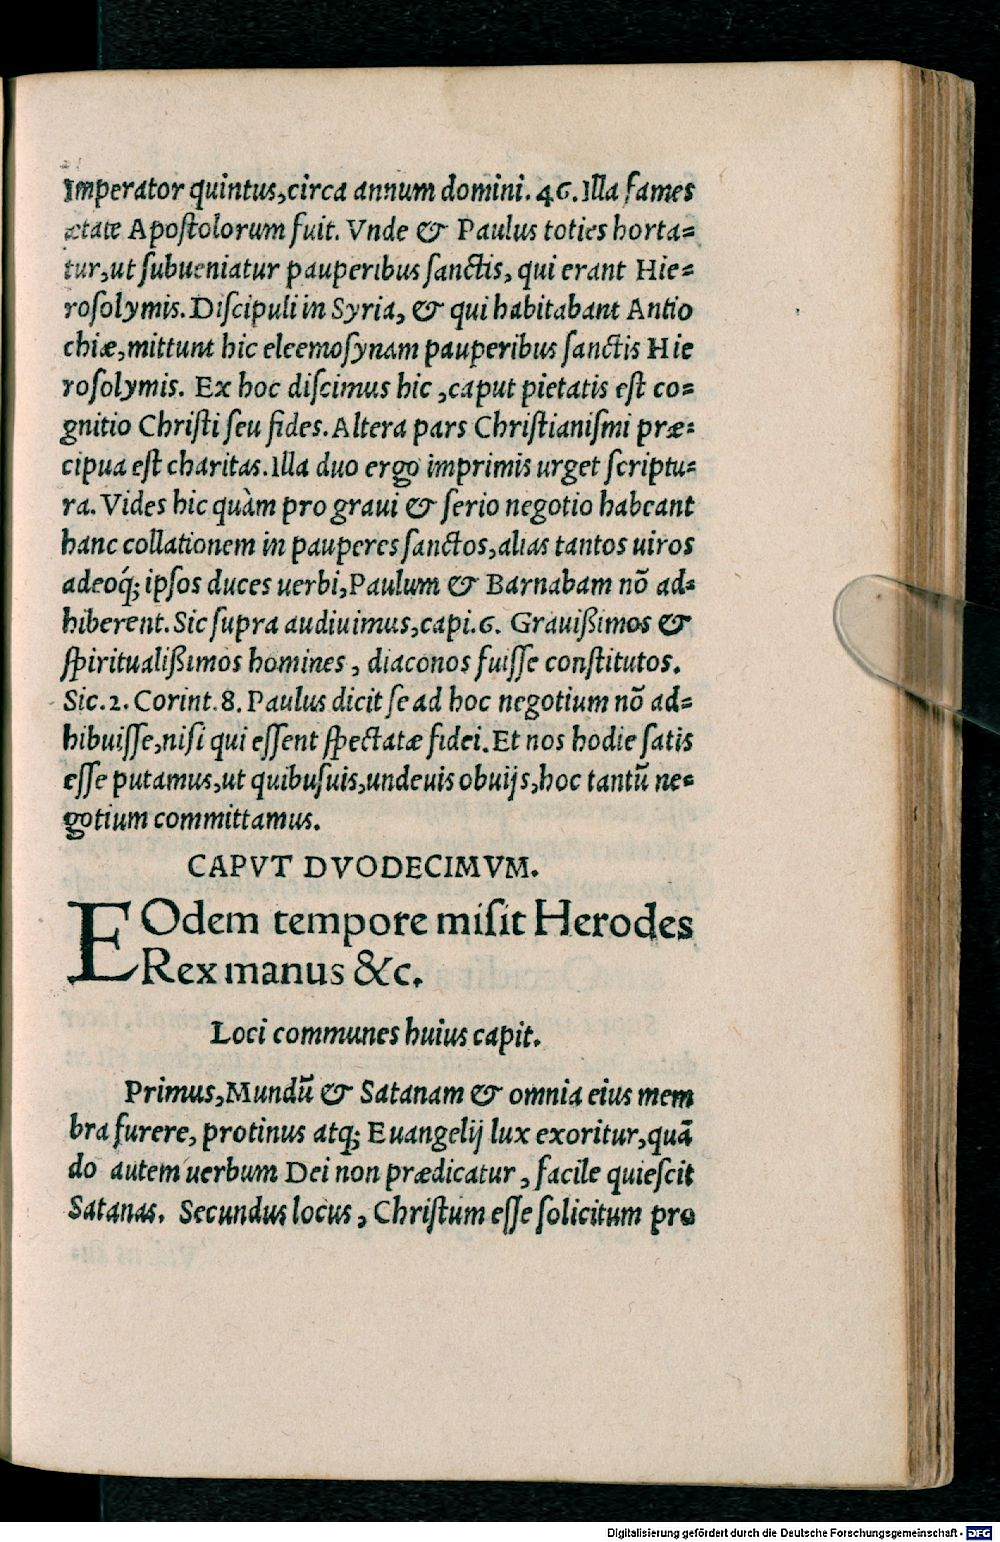 Imperator quintus,circa annum domini.46.Illa fames
ætate Apostolorum fuit. Vnde & Paulus toties horta=
tur,ut subueniatur pauperibus sanctis, qui erant Hie=
rosolymis.Discipuli in Syria, & qui habitabant Antio
chiæ,mittunt hic eleemosynam pauperibus sanctis Hie
rosolymis. Ex hoc discimus hic ,caput pietatis est co=
gnitio Christi seu fides.Altera pars Christianismi præ=
cipua est charitas.Illa duo ergo imprimis urget scriptu=
ra.Vides hic quàm pro graui & serio negotio habeant
hanc collationem in pauperes sanctos,alias tantos uiros
adeoq́; ipsos duces uerbi,Paulum & Barnabam nõ ad=
hiberent.Sic supra audiuimus,capi.6. Grauißimos &
spiritualißimos homines , diaconos fuisse constitutos.
Sic.2. Corint.8. Paulus dicit se ad hoc negotium nõ ad=
hibuisse,nisi qui essent spectatæ fidei.Et nos hodie satis
esse putamus,ut quibusuis,undeuis obuijs,hoc tantũ ne=
gotium committamus.
CAPVT DVODECIMVM.
EOdem tempore misit Herodes
Rex manus &c.
Loci communes huius capit.
Primus,Mundũ & Satanam & omnia eius mem
bra furere, protinus atq; Euangelij lux exoritur,quã
do autem uerbum Dei non prædicatur , facile quiescit
Satanas. Secundus locus , Christum esse solicitum pro
Digitalisierung gefördert durch die Deutsche Forschungsgemeinschaft - DFG